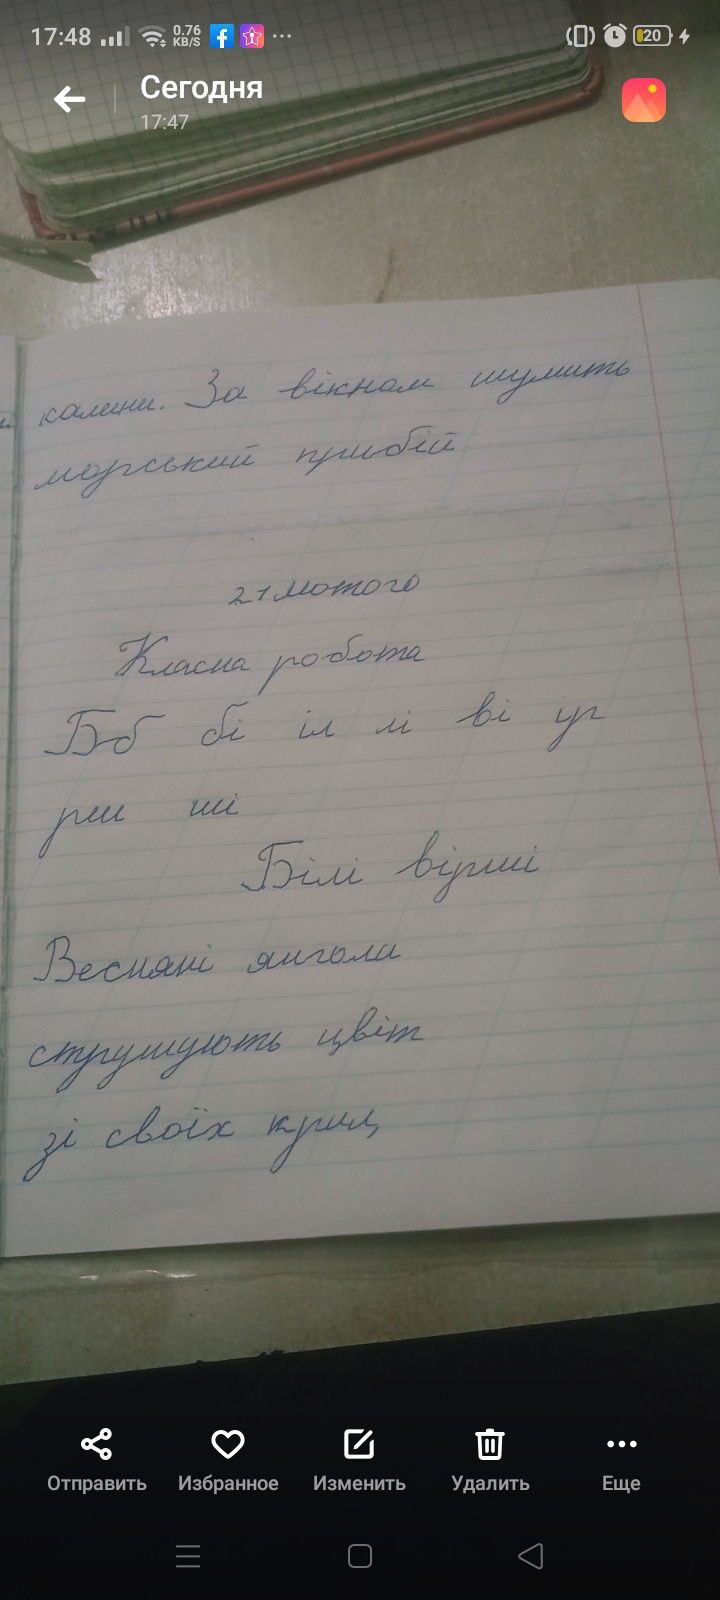 17:48 0.76 KB/S 20
Сегодня
17:47
калини. За вікном шумить
морський прибій
21 лютого
Класна робота
Бб бі іл лі ві ір
рш ші
Білі вірші
Весняні янголи
струшують цвіт
зі своїх крил,
Отправить Избранное Изменить Удалить Еще